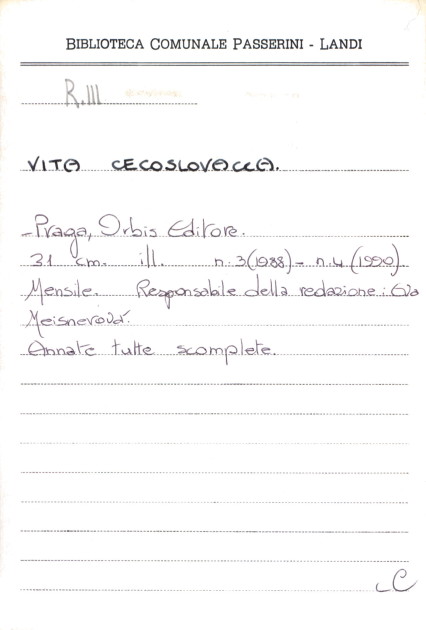 BIBLIOTECA COMUNALE PASSERINI - LANDI
R.III
VITA CECOSLOVACCA.
-Praga, Orbis Editore.
31 cm. ill. n.3(1988)- n.4(1990).
Mensile. Responsabile della redazione: Eva
Meisnerová.
Annate tutte scomplete.
C